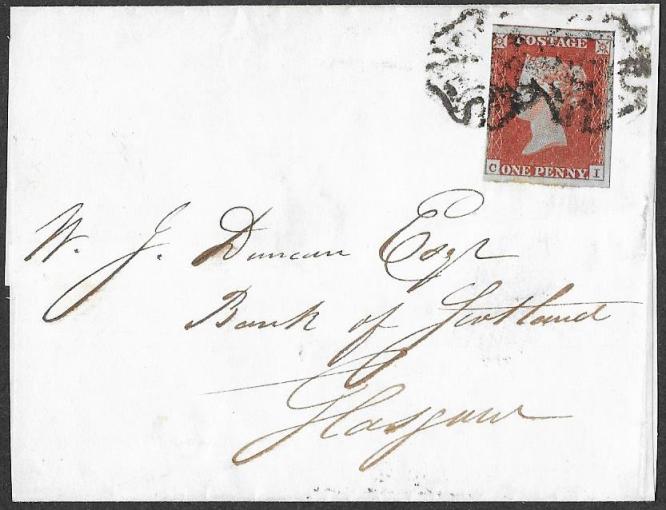 POSTAGE
C ONE PENNY I
W. J. Duncan Esqr
Bank of Scotland
Glasgow